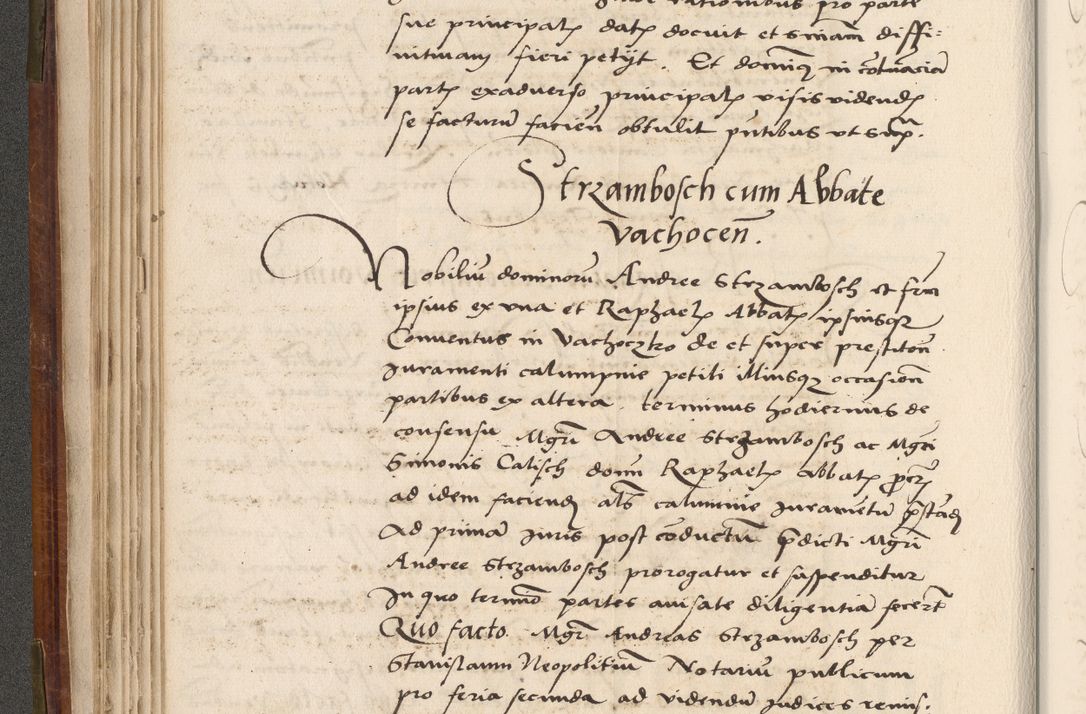 sue principalis datis docuit et sniam diffi:
nitivam fieri petijt. Et dominus in cotumacia
partis exadverso principalis visis videndis
se facturum facien obtulit pntibus ut supra.
Strzambosch cum Abbate
Vachocen.
Nobilium dominorum Andree Strzambosch et frm
ipsius ex una et Raphaelis Abbatis ipsiusque
Conventus in Vachoczko de et super prestiton
Juramenti calumpnie petiti illiusque occasion
partibus ex altera. terminus hodiernus de
consensu Mgri Andree Strzambosch ac Mgri
Simonis Calisch domini Raphaelis abbatis procris
ad idem faciendum als calumnie Juramentum pstandum
Ad primam Juris post conductum predicti Mgri
Andree Strzambosch prorogatur et suspenditur
In quo termino partes avisate diligentiam fecerunt
Quo facto. Mgr Andreas Strzambosch per
Stanislaum Neopolitium Notarium publicum
pro feria secunda ad videndum Judices remis.